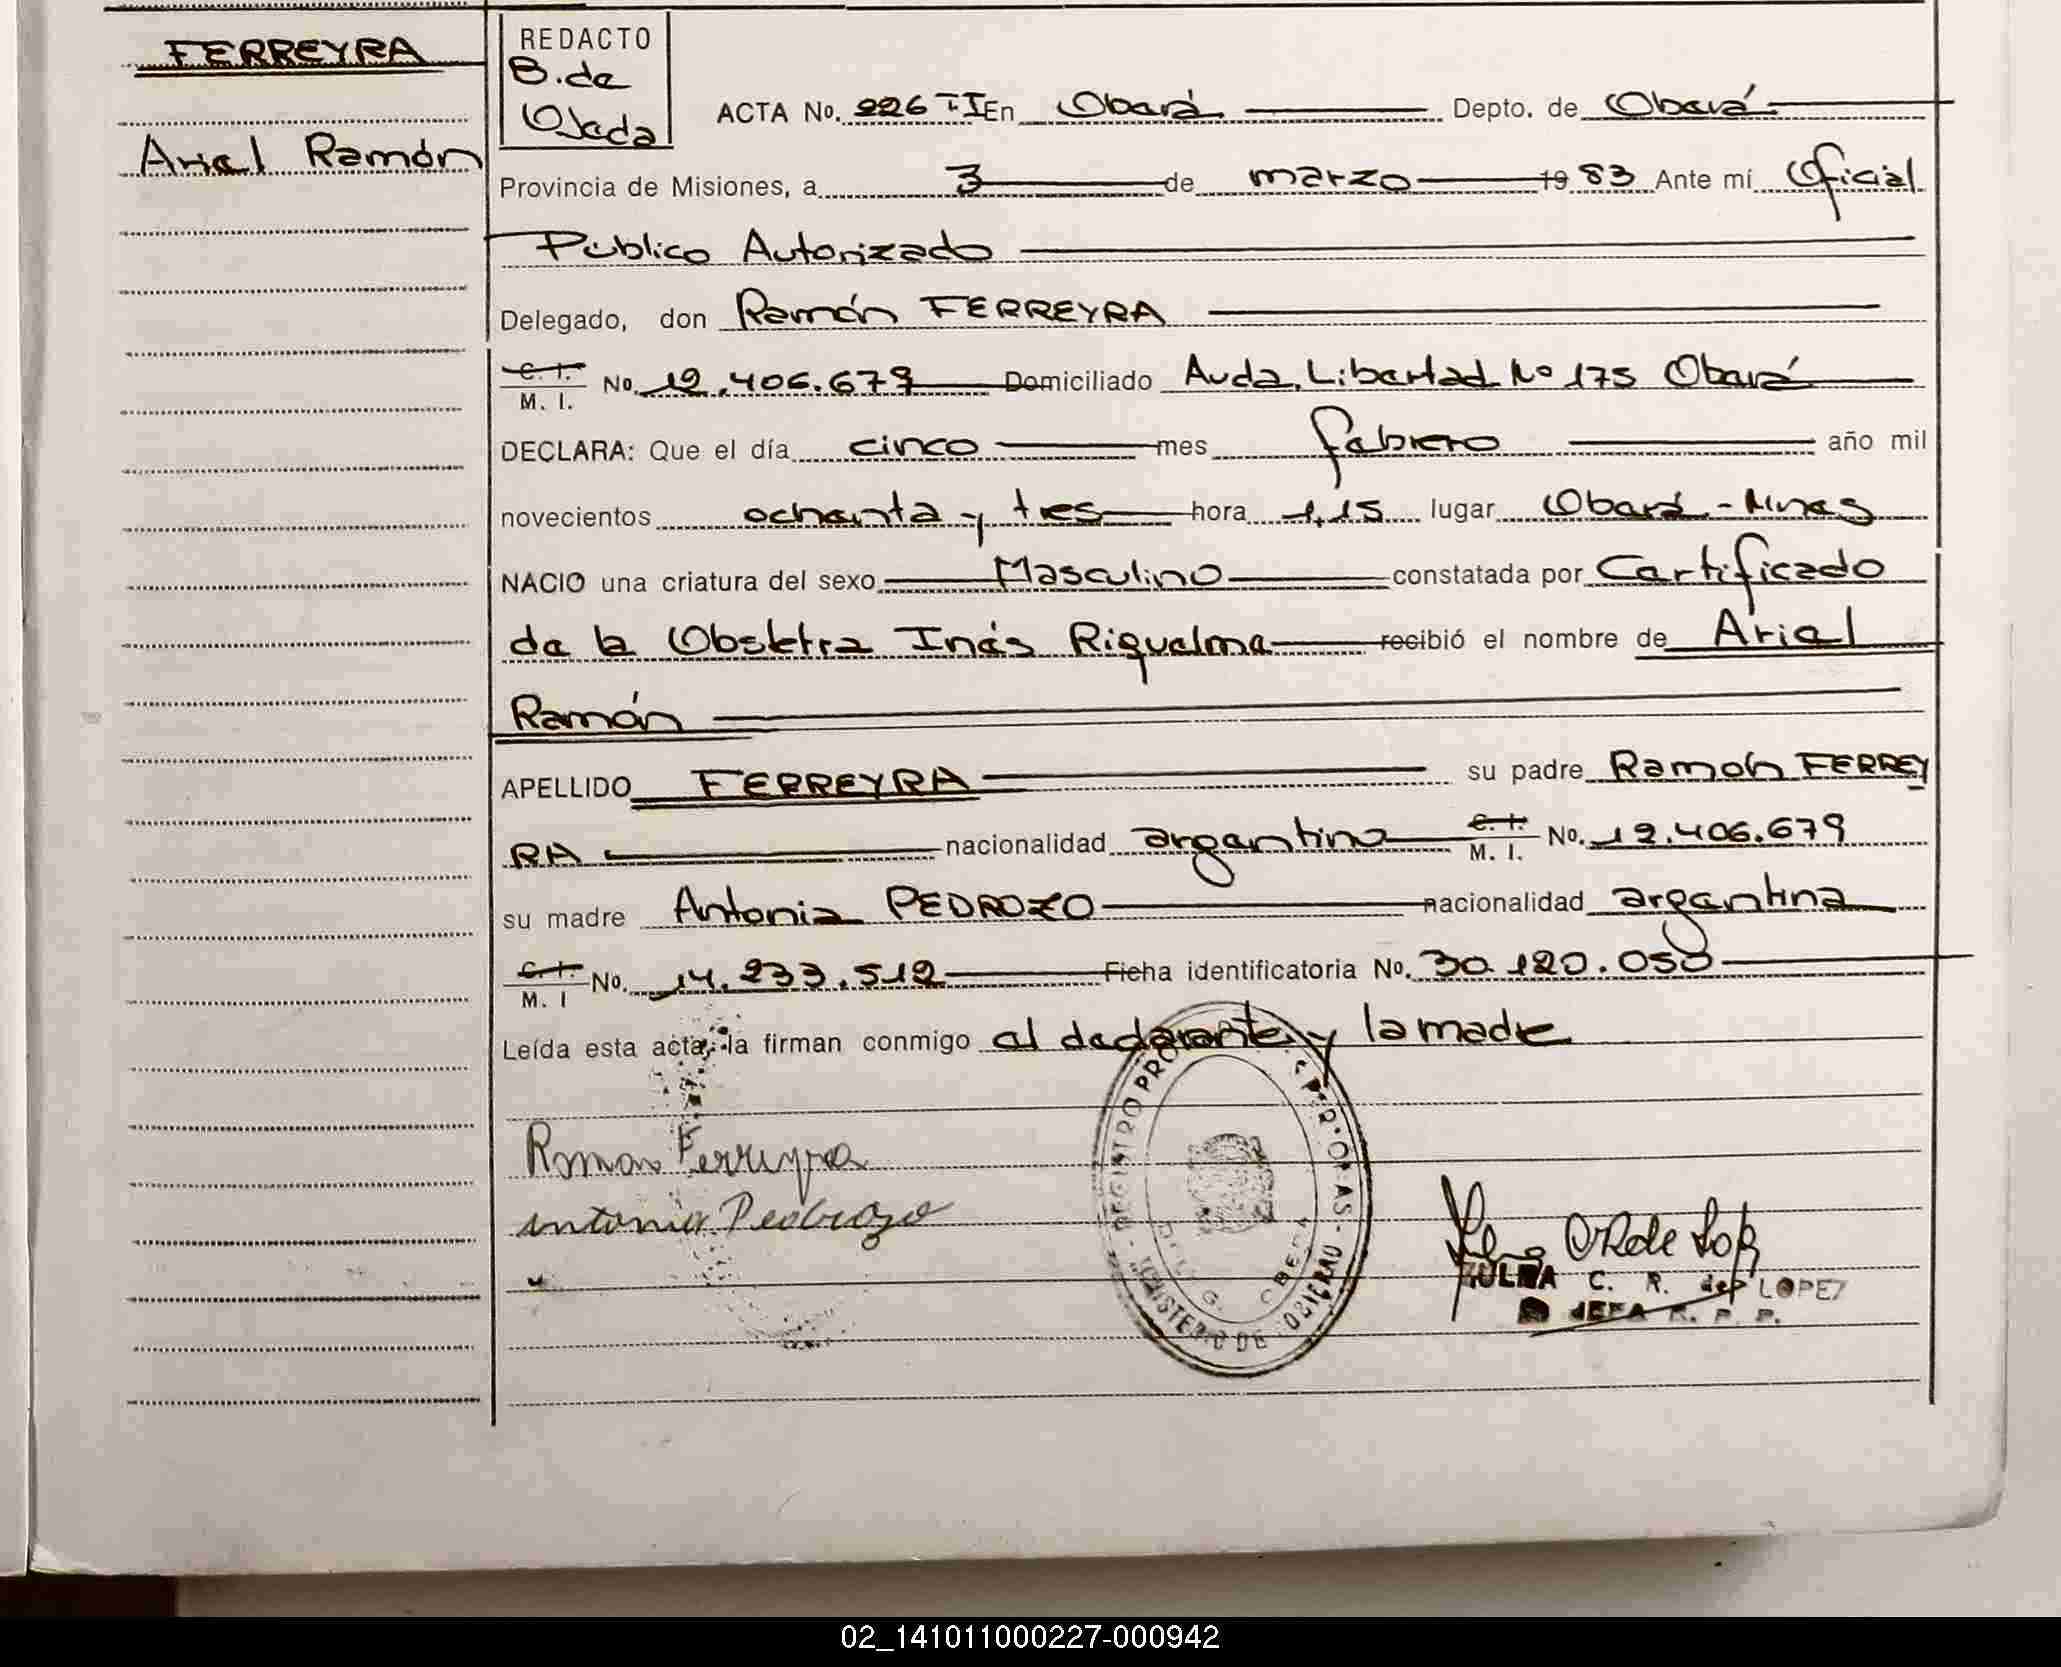 FERREYRA
Ariel Ramón
REDACTO
B. de
Ojeda
ACTA No. 226 TI En Oberá Depto. de Oberá
Provincia de Misiones, a 3 de marzo 1983 Ante mí Oficial
Público Autorizado
Delegado, don Ramón FERREYRA
C. I. / M. I. No. 12.406.679 Domiciliado Avda. Libertad No 175 Oberá
DECLARA: Que el día cinco mes febrero año mil
novecientos ochenta y tres hora 1,15 lugar Oberá - Mnes
NACIO una criatura del sexo Masculino constatada por Certificado
de la Obstetra Inés Riquelme recibió el nombre de Ariel
Ramón
APELLIDO FERREYRA su padre Ramón FERREY
RA nacionalidad argentino C. I. / M. I. No. 12.406.679
su madre Antonia PEDROZO nacionalidad argentina
C. I. / M. I No. 14.233.512 Ficha identificatoria No. 30.120.050
Leída esta acta, la firman conmigo el declarante y la madre
Ramon Ferreyra
antonia Pedrozo
ZULMA C. R. de LOPEZ
JEFA R. P. P.
02_141011000227-000942